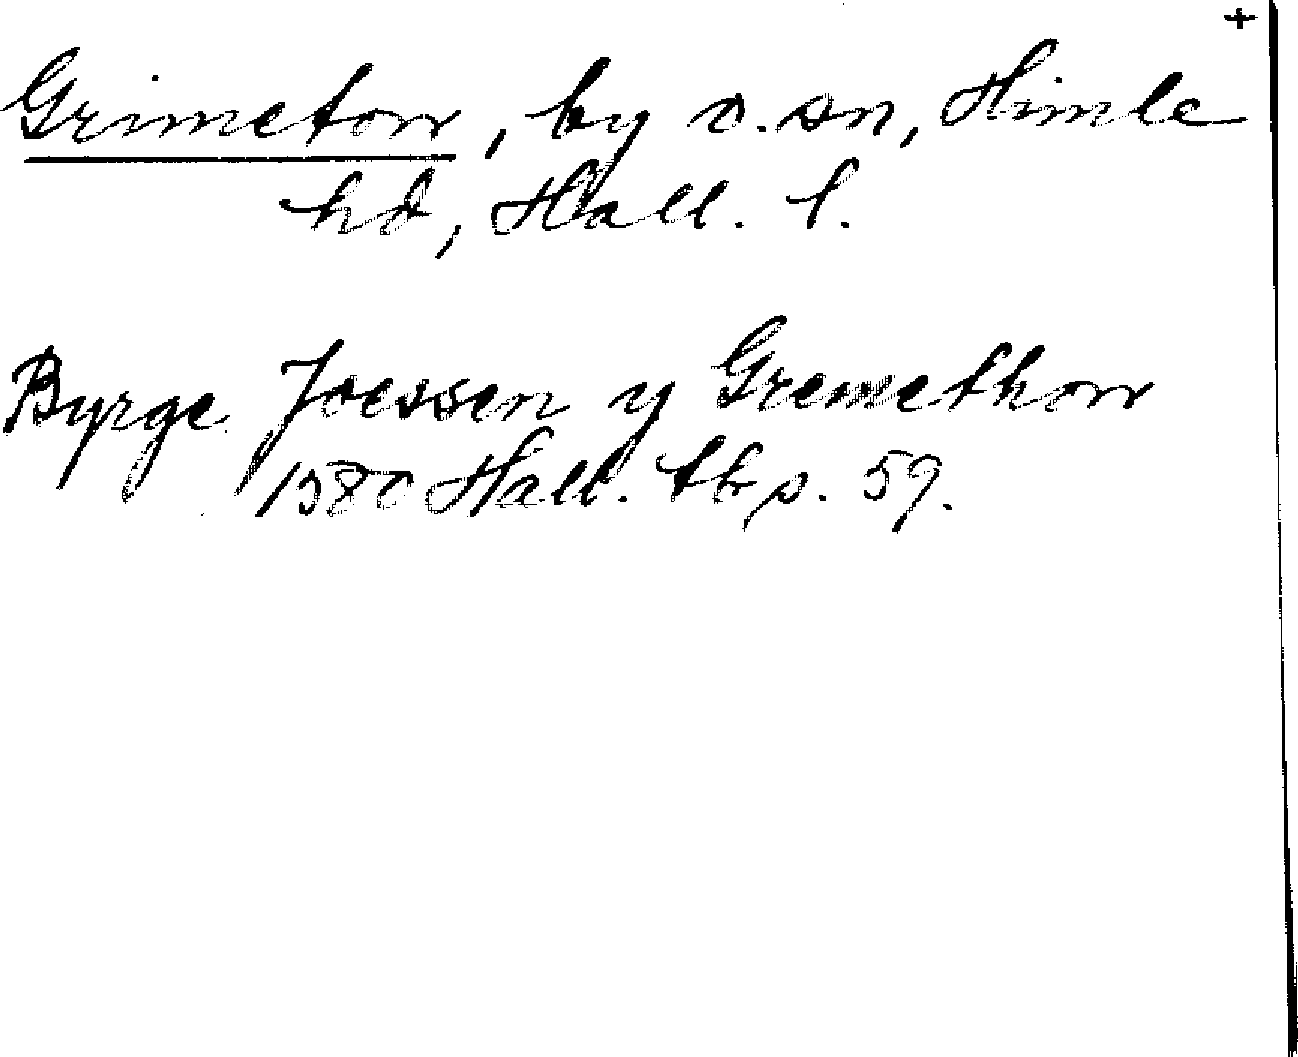 +
Grimeton, by o. sn, Himle
hd, Hall. l.
Byrge Joessen y Gremethon
1580 Hall. tb s. 59.